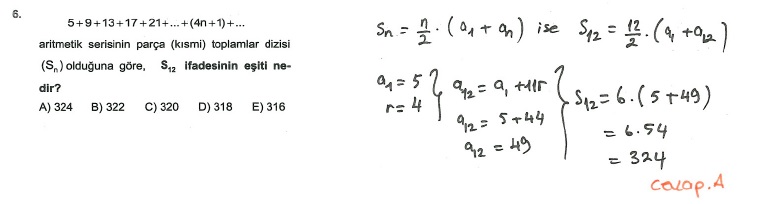 6.
5+9+13+17+21+...+(4n+1)+...
aritmetik serisinin parça (kısmi) toplamlar dizisi
(Sn) olduğuna göre, S12 ifadesinin eşiti ne-
dir?
A) 324 B) 322 C) 320 D) 318 E) 316
Sn = n/2 · (a1 + an) ise S12 = 12/2 · (a1 + a12)
a1 = 5
r = 4
a12 = a1 + 11r
a12 = 5 + 44
a12 = 49
S12 = 6 · (5 + 49)
= 6.54
= 324
cevap. A